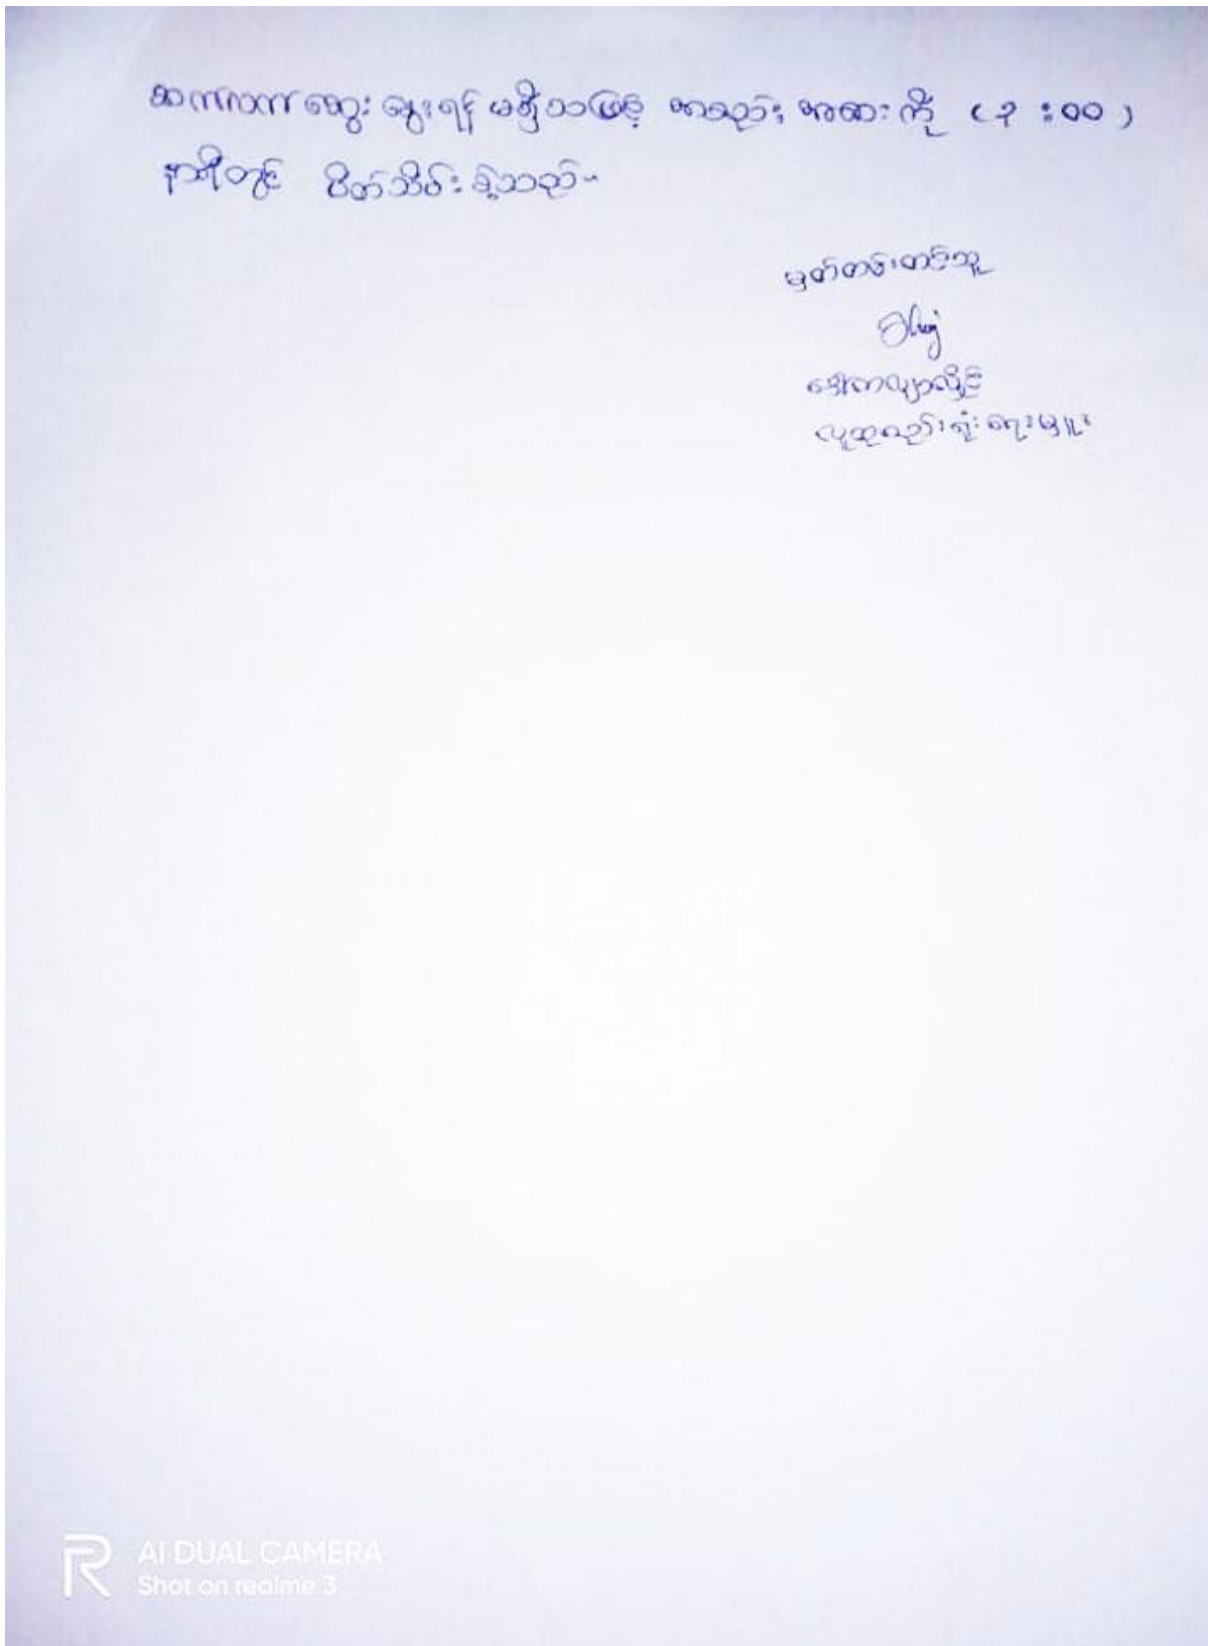 ဆက်လက်ဆွေးနွေးရန် မရှိသဖြင့် အစည်းအဝေးကို (၃:၀၀)
နာရီတွင် ပိတ်သိမ်းခဲ့သည်။
မှတ်တမ်းတင်သူ
ဒေါ်ကလျာလှိုင်
လူထုစည်းရုံးရေးမှူး
AI DUAL CAMERA
Shot on realme 3